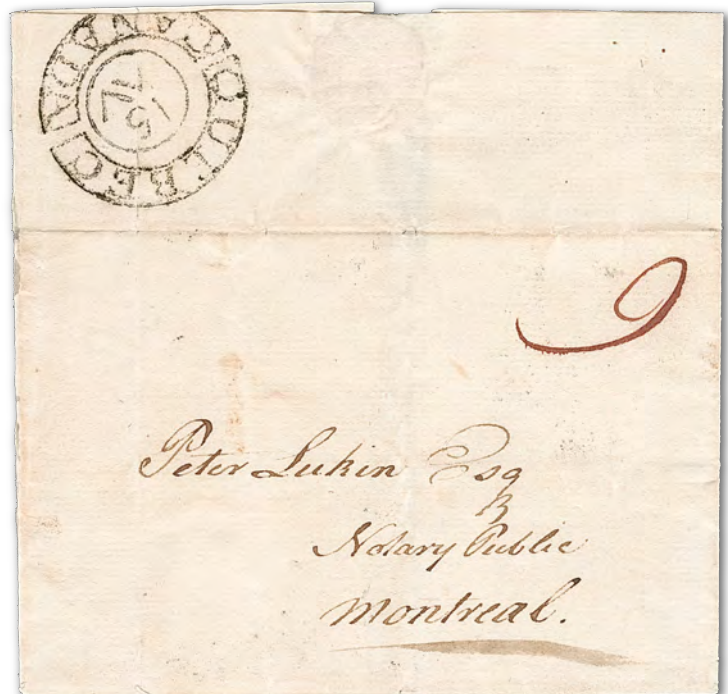 QUEBEC CANADA
9
Peter Lukin Esqr
Notary Public
Montreal.